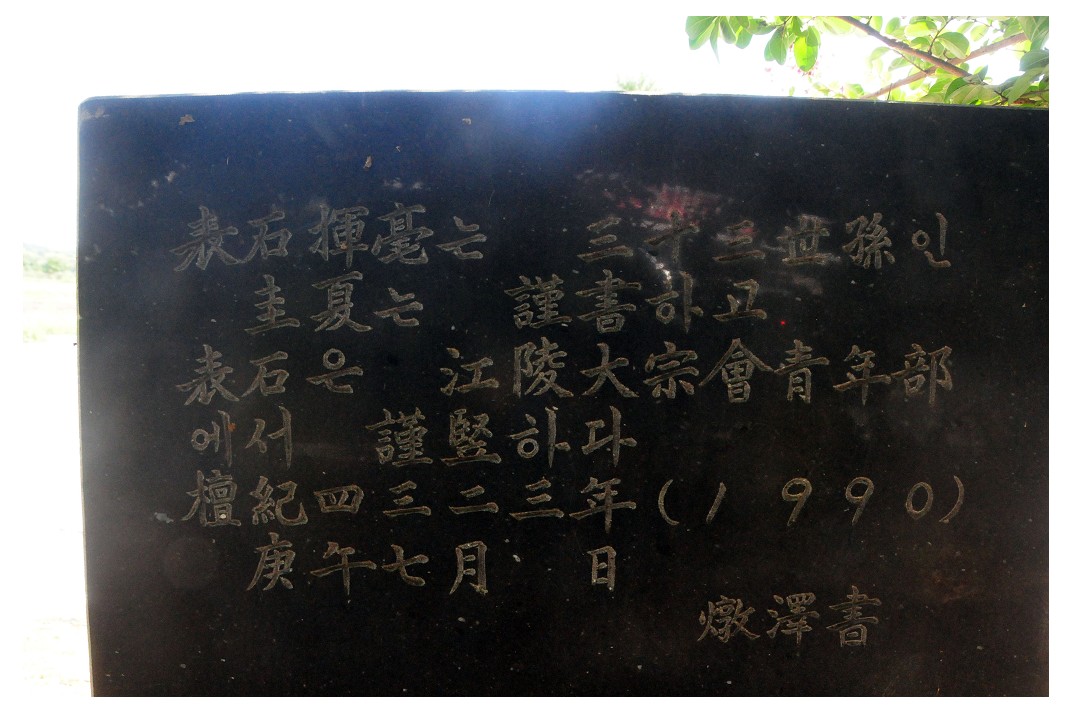 表石揮毫는 三十三世孫인
圭夏는 謹書하고
表石은 江陵大宗會青年部
에서 謹竪하다
檀紀四三二三年(1990)
庚午七月 日
燉澤書